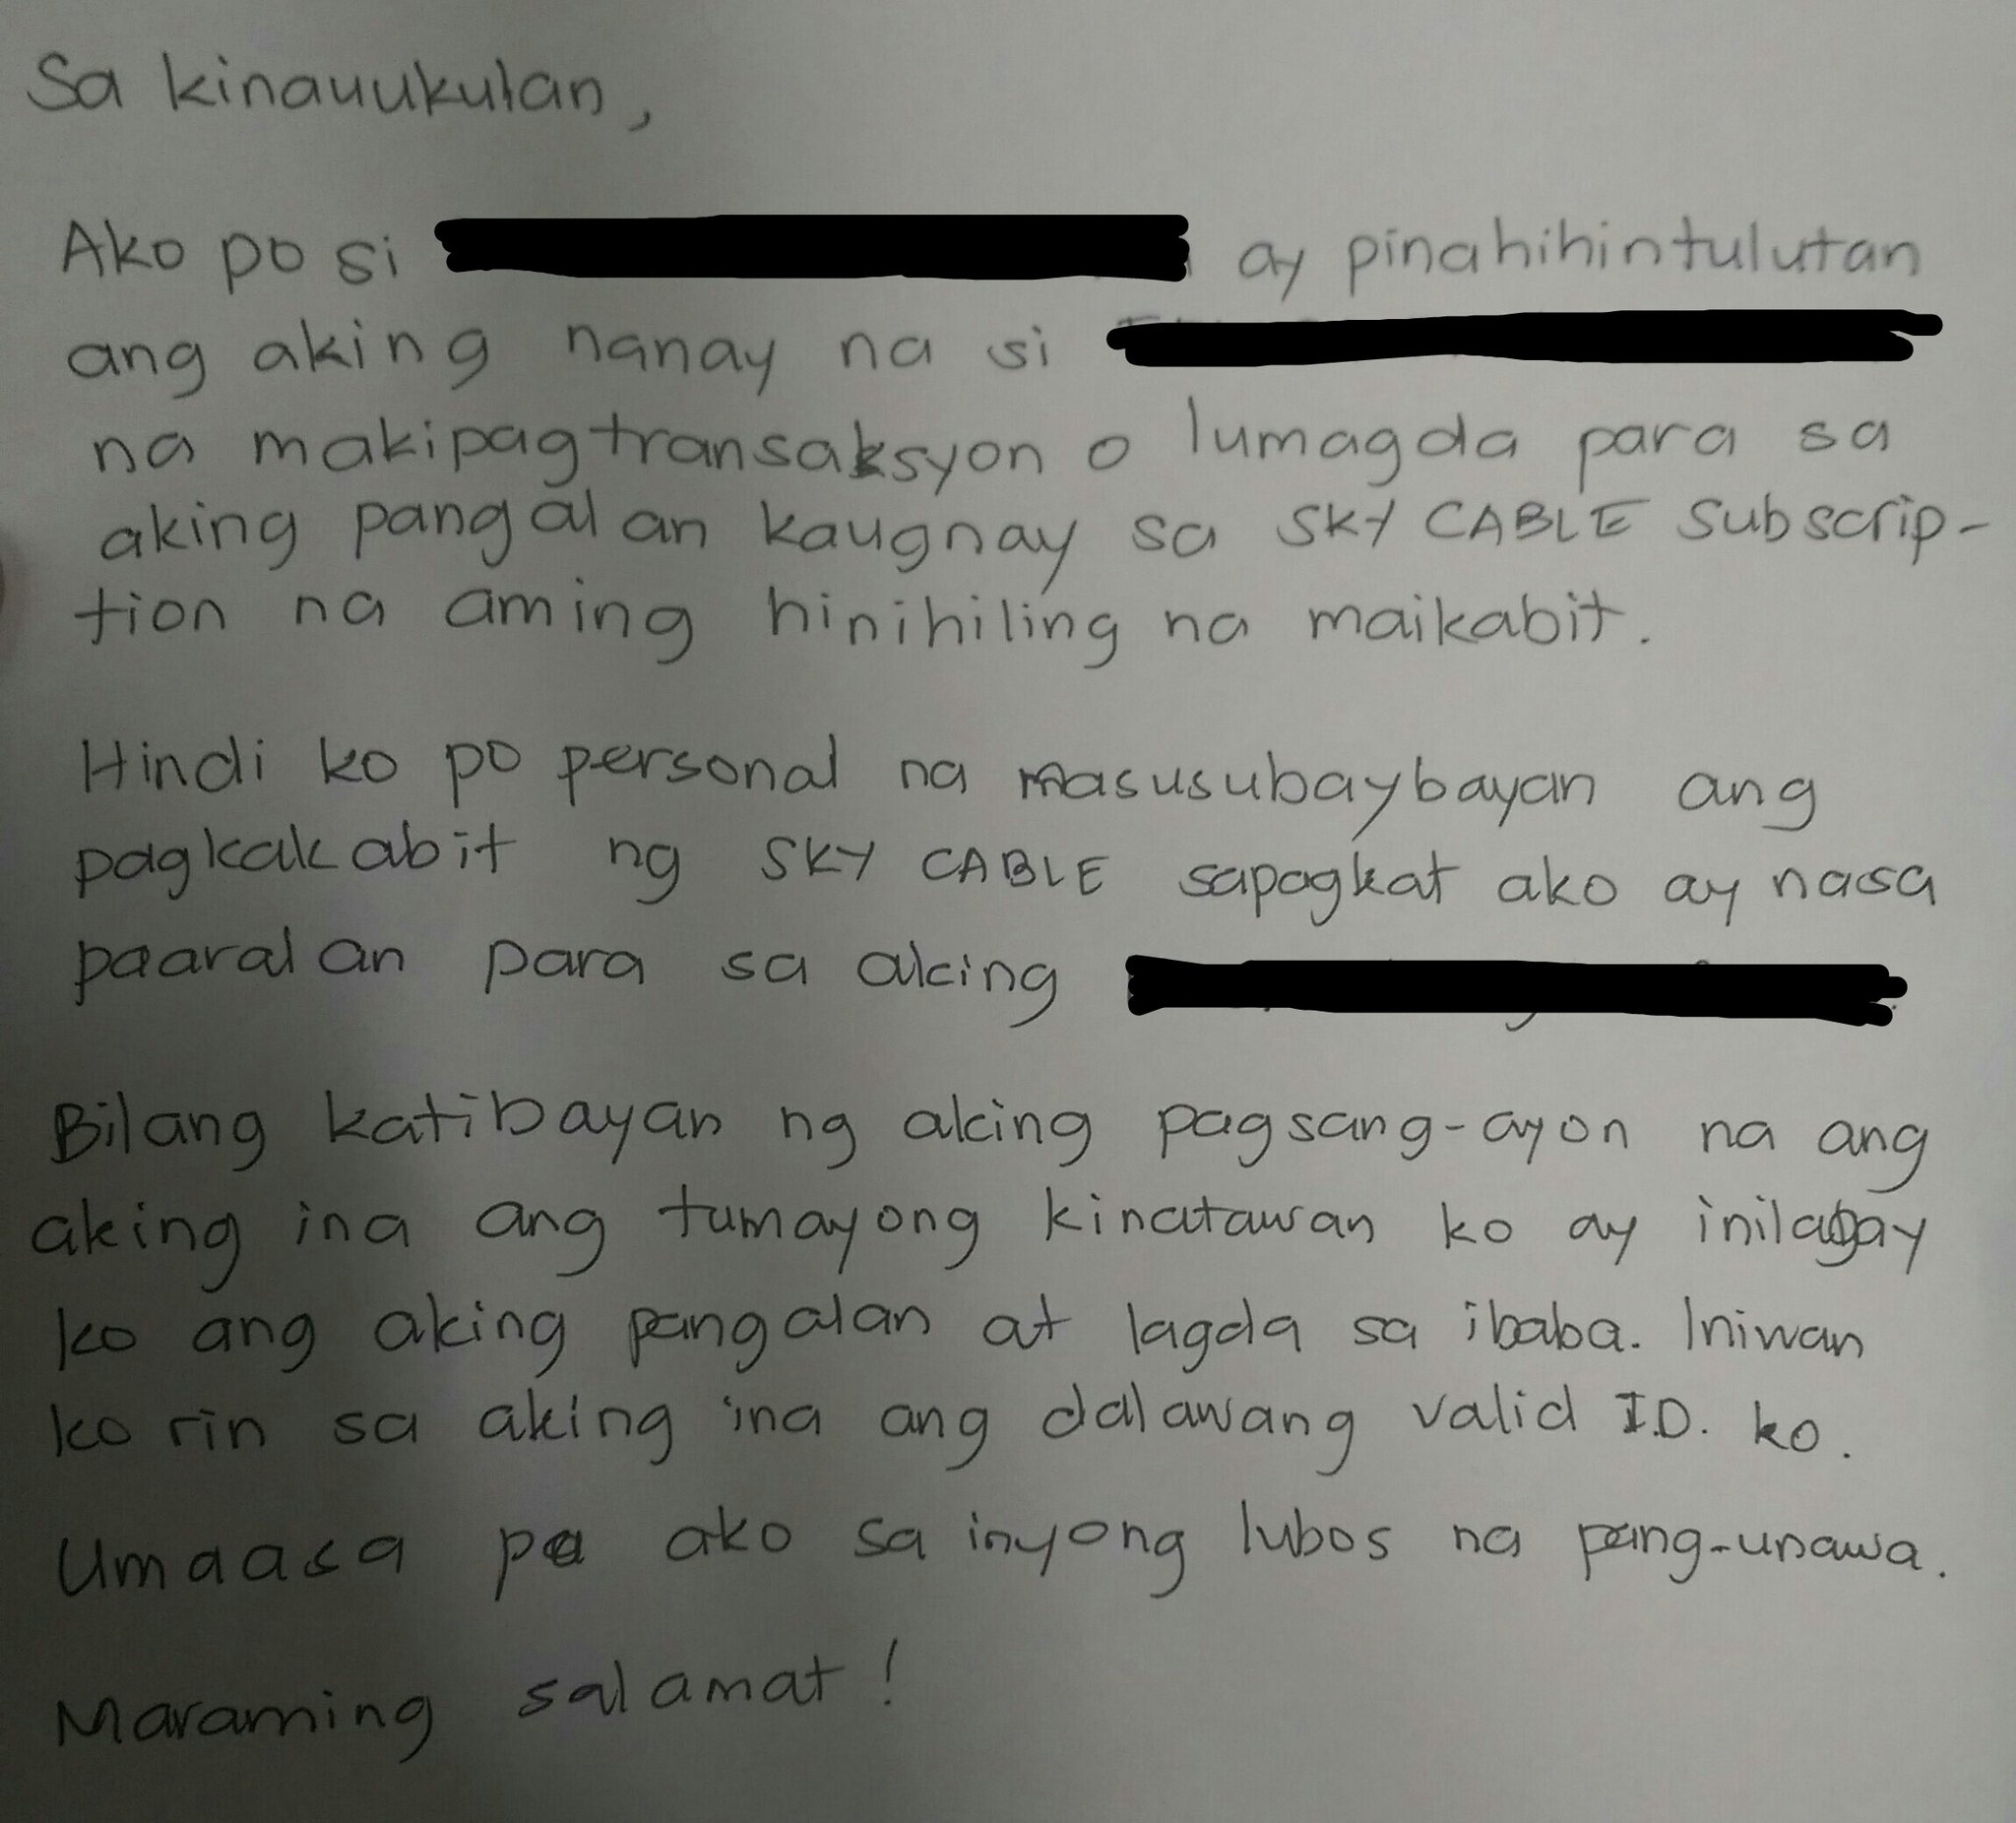 Sa kinauukulan,
Ako po si ay pinahihintulutan
ang aking nanay na si
na makipagtransaksyon o lumagda para sa
aking pangalan kaugnay sa SKY CABLE subscrip-
tion na aming hinihiling na maikabit.
Hindi ko po personal na masusubaybayan ang
pagkakabit ng SKY CABLE sapagkat ako ay nasa
paaralan para sa aking
Bilang katibayan ng aking pagsang-ayon na ang
aking ina ang tumayong kinatawan ko ay inilagay
ko ang aking pangalan at lagda sa ibaba. Iniwan
ko rin sa aking ina ang dalawang valid I.D. ko.
Umaasa ako sa inyong lubos na pang-unawa.
Maraming salamat!